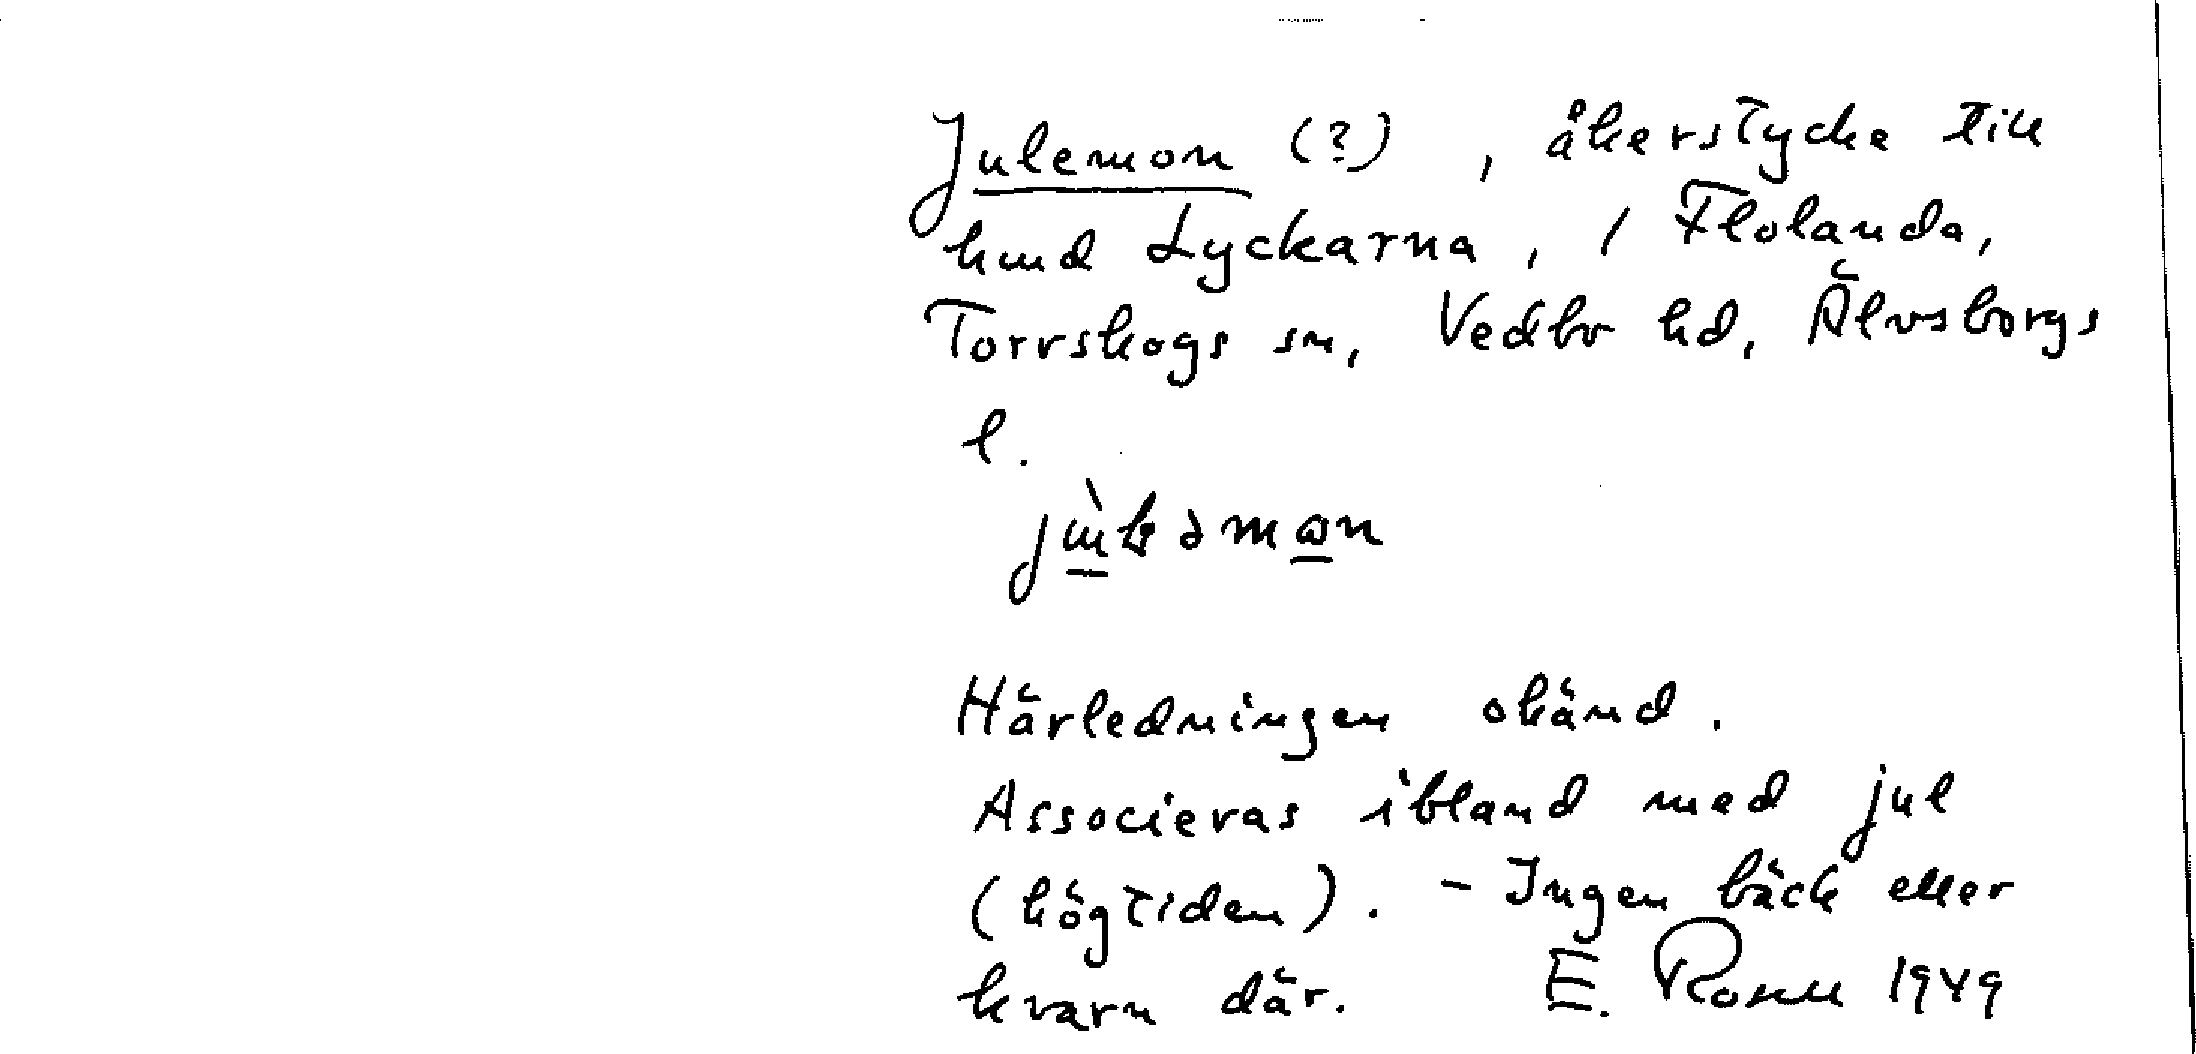 Julemon (?), åkerstycke till
hmd Lyckarna, i Flolanda,
Torrskogs sn, Vedbo hd, Älvsborgs
l.
Härledningen okänd.
Associeras ibland med jul
(högtiden). - Ingen bäck eller
kvarn där. E. Rosell 1949